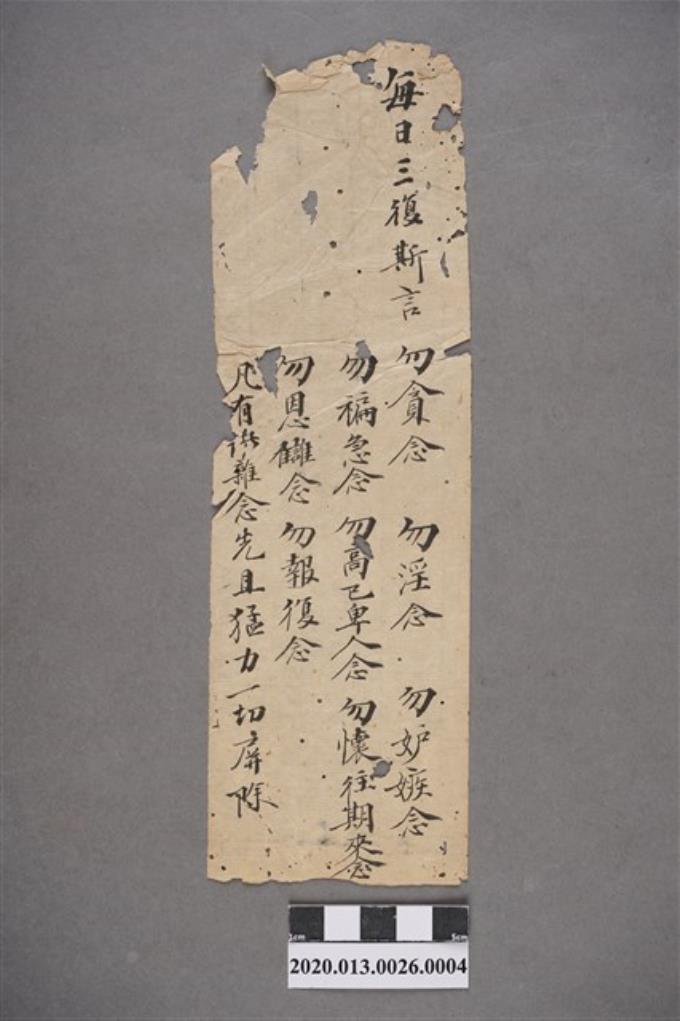 每日三復斯言
勿貪念 勿淫念 勿妒嫉念
勿褊急念 勿高己卑人念 勿懷往期來念
勿恩讎念 勿報復念
凡有此雜念先且猛力一切屏除
1cm 5cm
2020.013.0026.0004